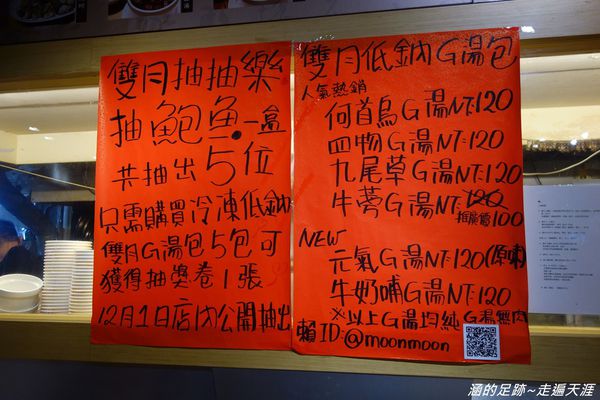 雙月抽抽樂
抽鮑魚一盒
共抽出5位
只需購買冷凍低鈉
雙月G湯包5包可
獲得抽獎卷1張
12月1日店內公開抽出
雙月低鈉G湯包
人氣熱銷
何首烏G湯NT:120
四物G湯NT:120
九尾草G湯NT:120
牛蒡G湯NT:120
推廣價100
NEW
元氣G湯NT:120(原味)
牛奶哺G湯NT:120
※以上G湯均純G湯無肉
賴ID:@moonmoon
涵的足跡~走遍天涯